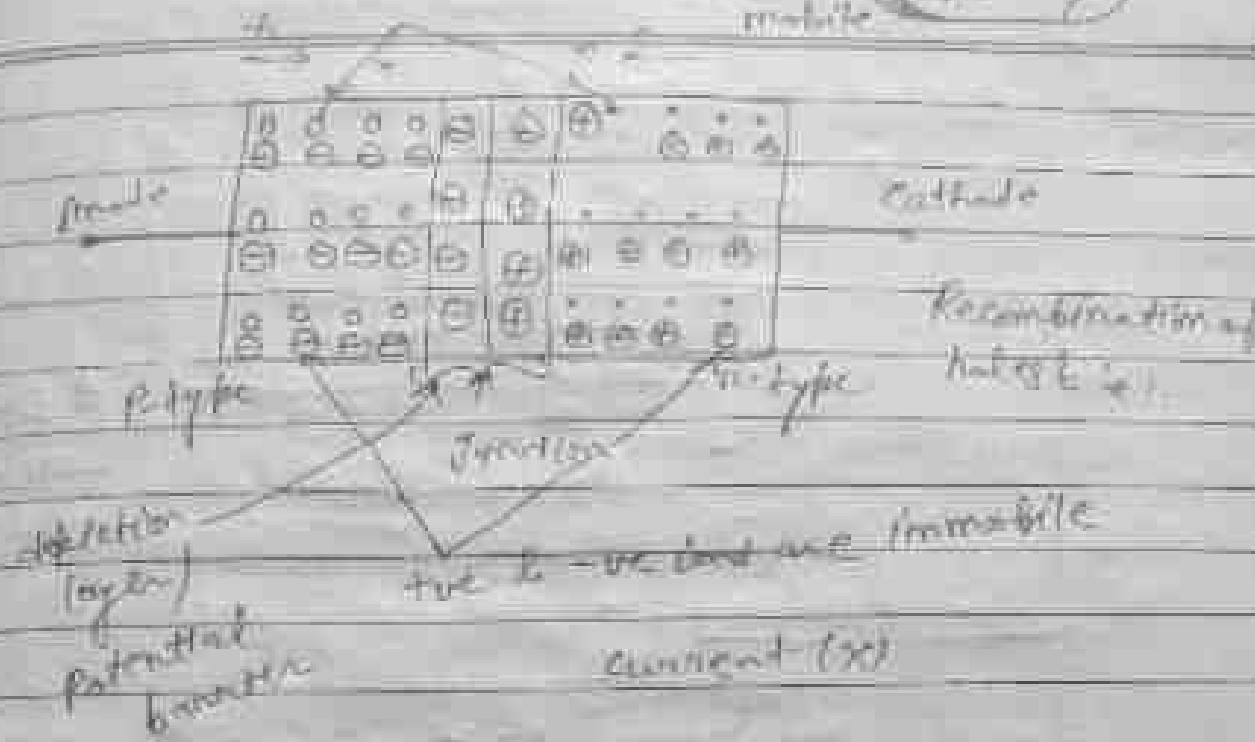 mobile
Anode
Cathode
Recombination of
holes &
p-type
n-type
Junction
depletion
layer)
+ve & -ve are immobile
potential
barrier
current (x)